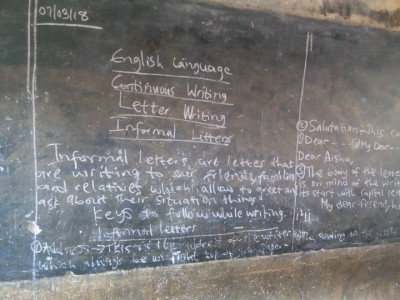 07/03/18
English Language
Continuous Writing
Letter Writing
Informal Letters
Informal letters are letter that
are writing to our friends, families
and relatives which allow to greet and
ask about their situation things.
Keys to follow while writing.
Informal letters
① Address → This is the address of the writer
which always be on right
② Salutation → This
① Dear - - - ② My Dear - - -
Dear Aisha,
③ The body of the letter
is on mind of the
its start with capital letter
My dear friend,